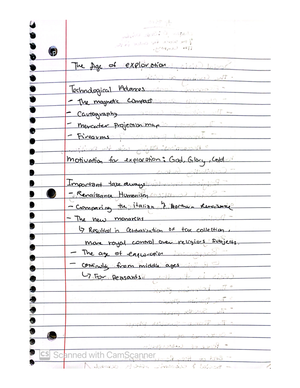 The Age of exploration
Technological Advances
- The magnetic compass
- Cartography
- Mercator Projection map
- Firearms
Motivation for exploration: God, Glory, Gold
Important take aways
- Renaissance Humanism
- Comparing the Italian & Northern Renaissance
- The new monarchs
↳ Resulted in centralization of tax collection,
more royal control over religious subjects.
- The age of exploration
- continuity from middle ages
↳ For peasants
CS Scanned with CamScanner